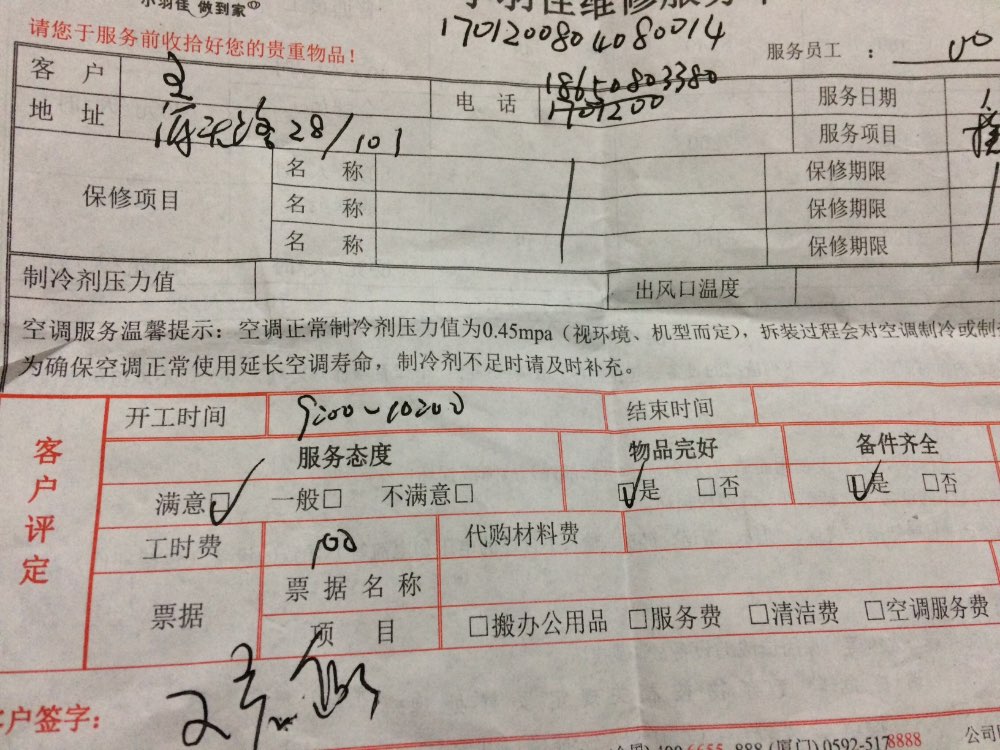 小羽佳 做到家
小羽佳维修服务单
1701200804080014
请您于服务前收拾好您的贵重物品！
服务员工：
客户 王 电话 18650803380 服务日期
1701200
地址 28/101 服务项目
保修项目 名称 保修期限
名称 保修期限
名称 保修期限
制冷剂压力值 出风口温度
空调服务温馨提示：空调正常制冷剂压力值为0.45mpa（视环境、机型而定），拆装过程会对空调制冷或制
为确保空调正常使用延长空调寿命，制冷剂不足时请及时补充。
客户评定
开工时间 9:00~10:00 结束时间
服务态度 物品完好 备件齐全
满意☑ 一般□ 不满意□ ☑是 □否 ☑是 □否
工时费 100 代购材料费
票据 票据名称
项目 □搬办公用品 □服务费 □清洁费 □空调服务费
客户签字：
6655 888 (厦门) 0592-5178888 公司